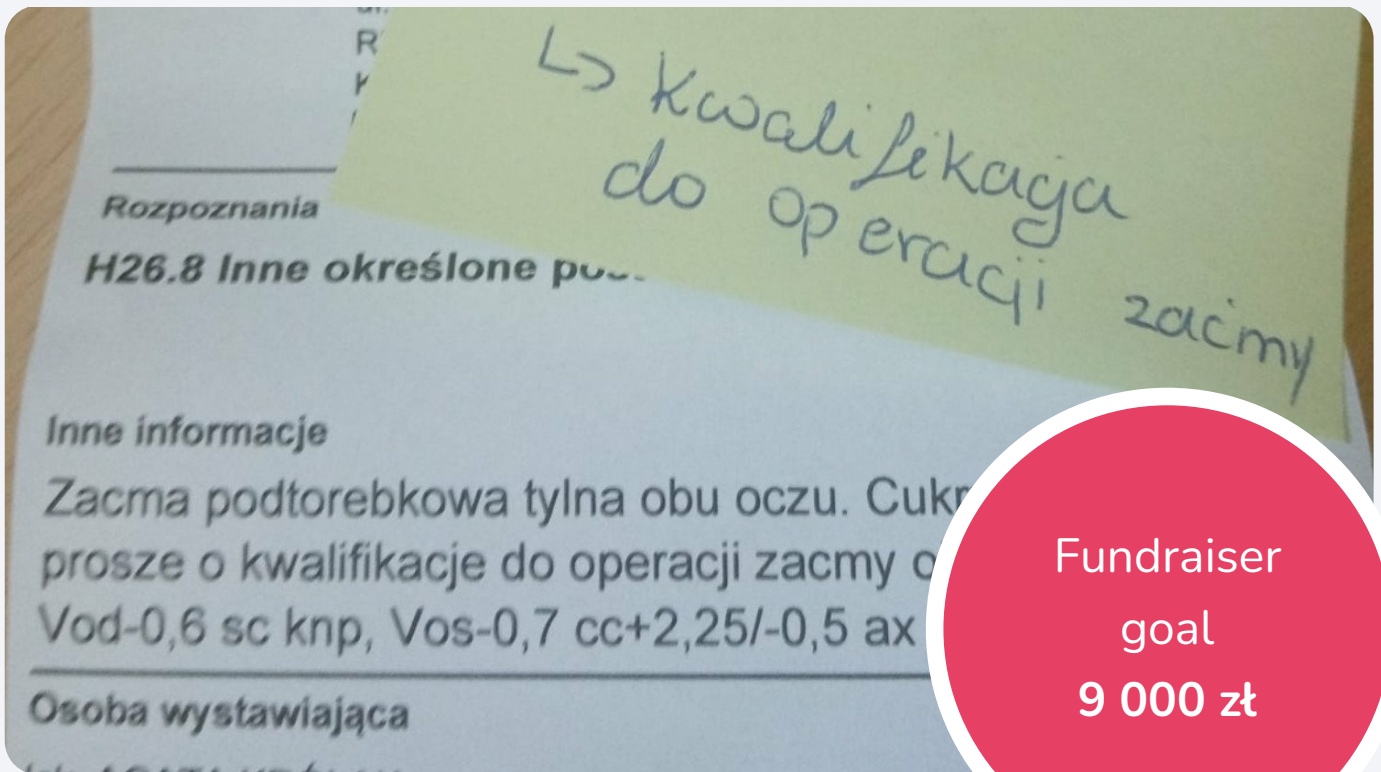 R
↳ Kwalifikacja
do operacji zaćmy
Rozpoznania
H26.8 Inne określone
Inne informacje
Zacma podtorebkowa tylna obu oczu.
prosze o kwalifikacje do operacji zacmy
Vod-0,6 sc knp, Vos-0,7 cc+2,25/-0,5 ax
Osoba wystawiająca
Fundraiser
goal
9 000 zł